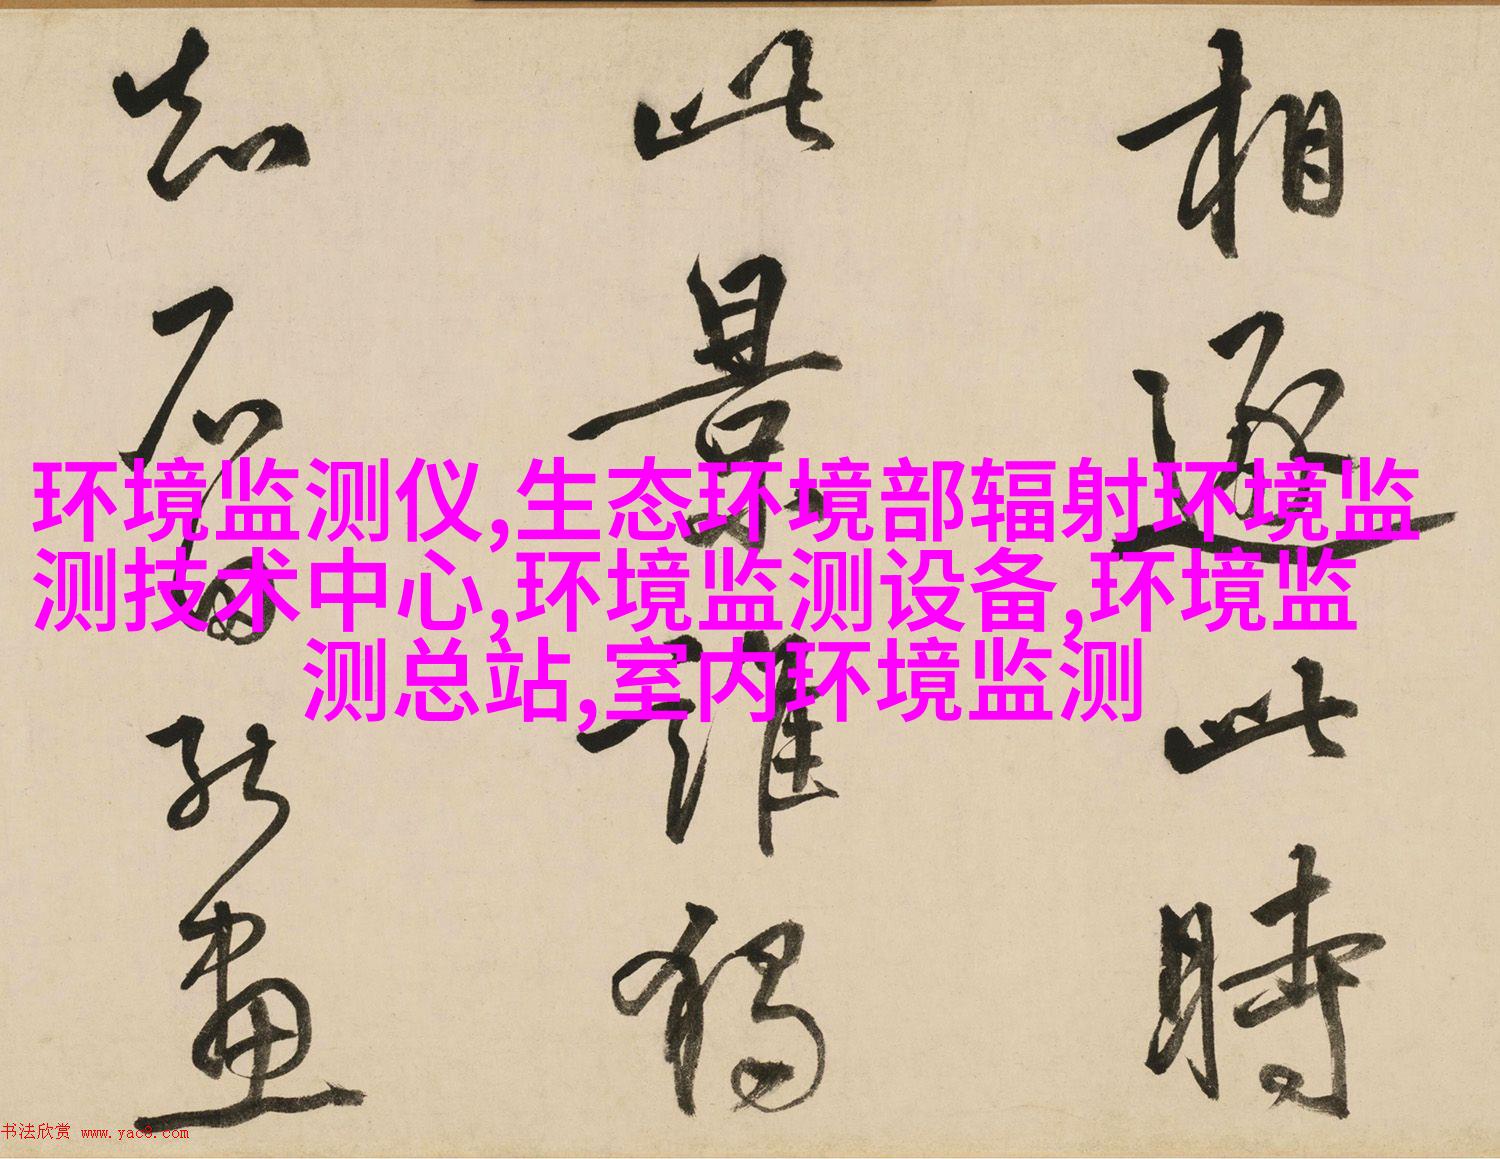 相逐此時
此景誰獨
知石能畫
环境监测仪,生态环境部辐射环境监
测技术中心,环境监测设备,环境监
测总站,室内环境监测
书法欣赏 www.yac8.com